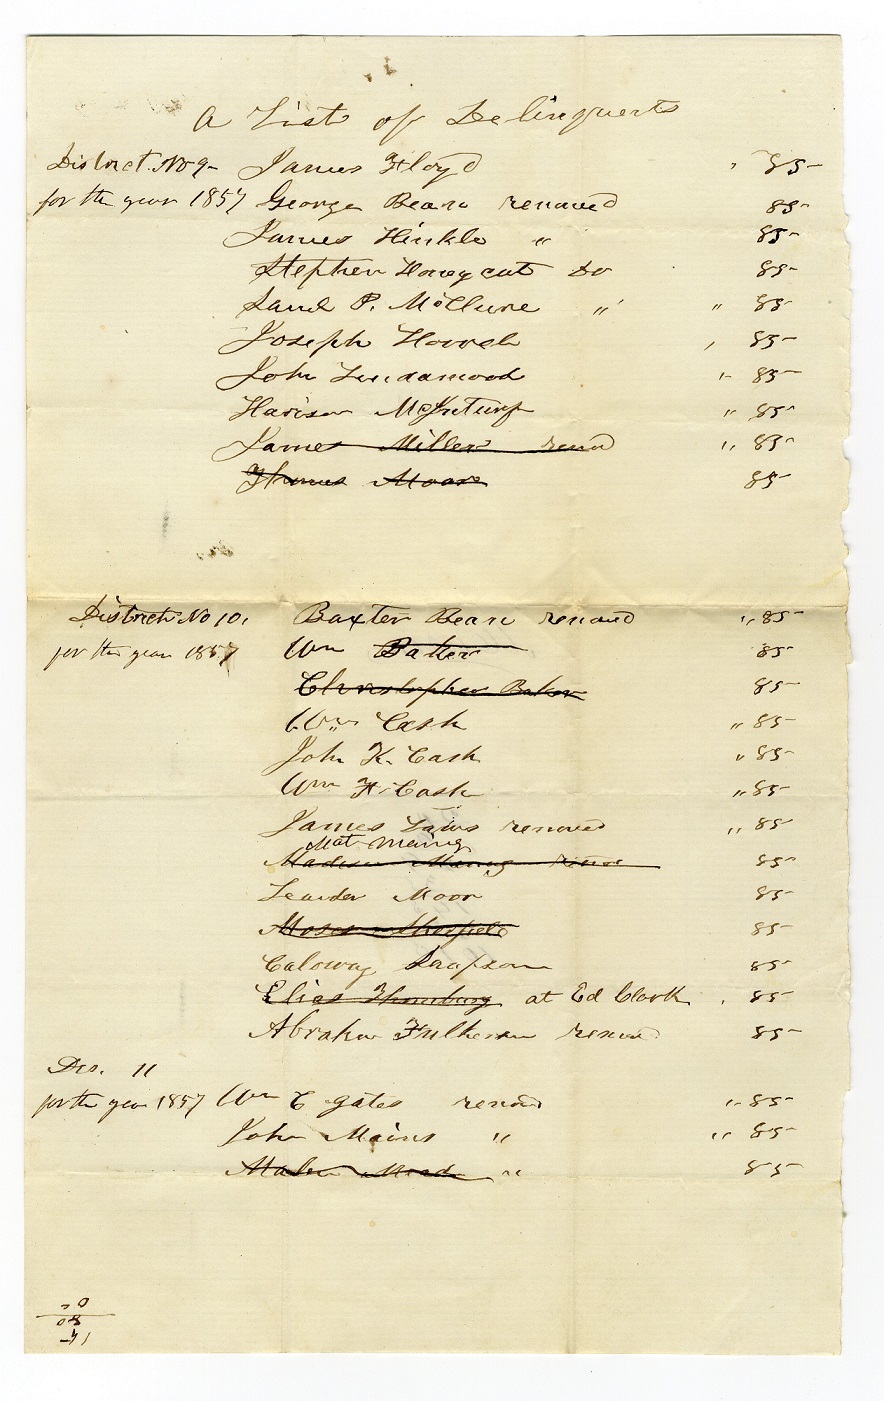 A List of Delinquents
District No 9 James Floyd " 85
for the year 1857 George Bean removed 85
James Hinkle " 85
Stephen Honeycut Do 85
Saml P. McClure " " 85
Joseph Hoovch , 85
John Lindamood " 85
Harison McInturf " 85
James Miller remd " 85
Thomas Moore 85
District No 10. Baxter Bean removd " 85
for the year 1857 Wm Baker 85
Christopher Baker 85
Wm Cash " 85
John K. Cash " 85
Wm H. Cash " 85
James Laws removed " 85
Mat Maing
Madison 85
Leander Moor 85
Moses 85
Caloway 85
Elias Thornburg at Ed Clark . 85
Abraham Fulkerson removd 85
Dis. 11
for the year 1857 Wm C gates removd " 85
John Mains " " 85
" 85